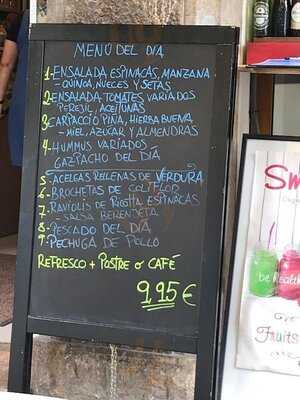 MENÚ DEL DIA
1-ENSALADA ESPINACAS, MANZANA
- QUINOA, NUECES Y SETAS
2-ENSALADA TOMATES VARIADOS
PEREJIL, ACEITUNAS
3-CARPACCIO PIÑA, HIERBA BUENA
- MIEL, AZÚCAR Y ALMENDRAS
4-HUMMUS VARIADOS
GAZPACHO DEL DÍA
5-ACELGAS RELLENAS DE VERDURA
6-BROCHETAS DE COLIFLOR
7-RAVIOLIS DE RICOTTA ESPINACAS
- SALSA BERENJENA
8-PESCADO DEL DÍA
9-PECHUGA DE POLLO
REFRESCO + POSTRE O CAFÉ
9,95€
Sm
be Health
Fruits